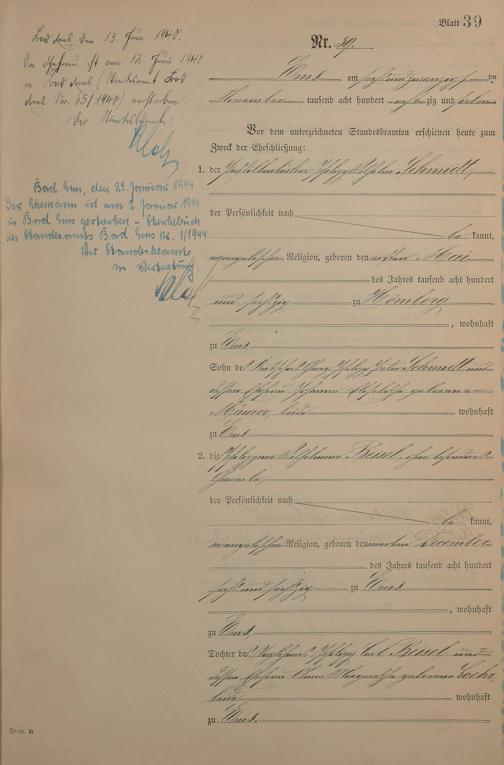 Blatt 39
Nr. 39.
Ems am sechsundzwanzigsten
November tausend acht hundert achtzig und sieben
Vor dem unterzeichneten Standesbeamten erschienen heute zum
Zweck der Eheschließung:
1. der Philipp Wilhelm Schmidt,
der Persönlichkeit nach
be kannt,
evangelischer Religion, geboren den Mai
des Jahres tausend acht hundert
und sechzig zu Hömberg
, wohnhaft
zu Ems
Sohn des Georg Philipp Schmidt und
dessen Ehefrau Johanna Elisabethe geborene
Maurer, beide wohnhaft
zu Ems
2. die Philippine Wilhelmine Bessel, ohne besonderes
Gewerbe,
der Persönlichkeit nach
be kannt,
evangelischer Religion, geboren den neunten December
des Jahres tausend acht hundert
sechs und sechzig zu Ems
, wohnhaft
zu Ems
Tochter des Philipp Carl Bessel und
dessen Ehefrau Anna Margarethe geborene
beide wohnhaft
zu Ems.
Bad Ems den 13 Juni 1940.
Die Ehefrau ist am 12 Juni 1940
in Bad Ems (Standesamt Bad
Ems Nr. 65/1940) verstorben.
Der Standesbeamte:
Bad Ems, den 22. Januar 1944
Der Ehemann ist am 2. Januar 1944
in Bad Ems gestorben – Sterbebuch
des Standesamts Bad Ems Nr. 1/1944
Der Standesbeamte
in Vertretung:
Form. B.